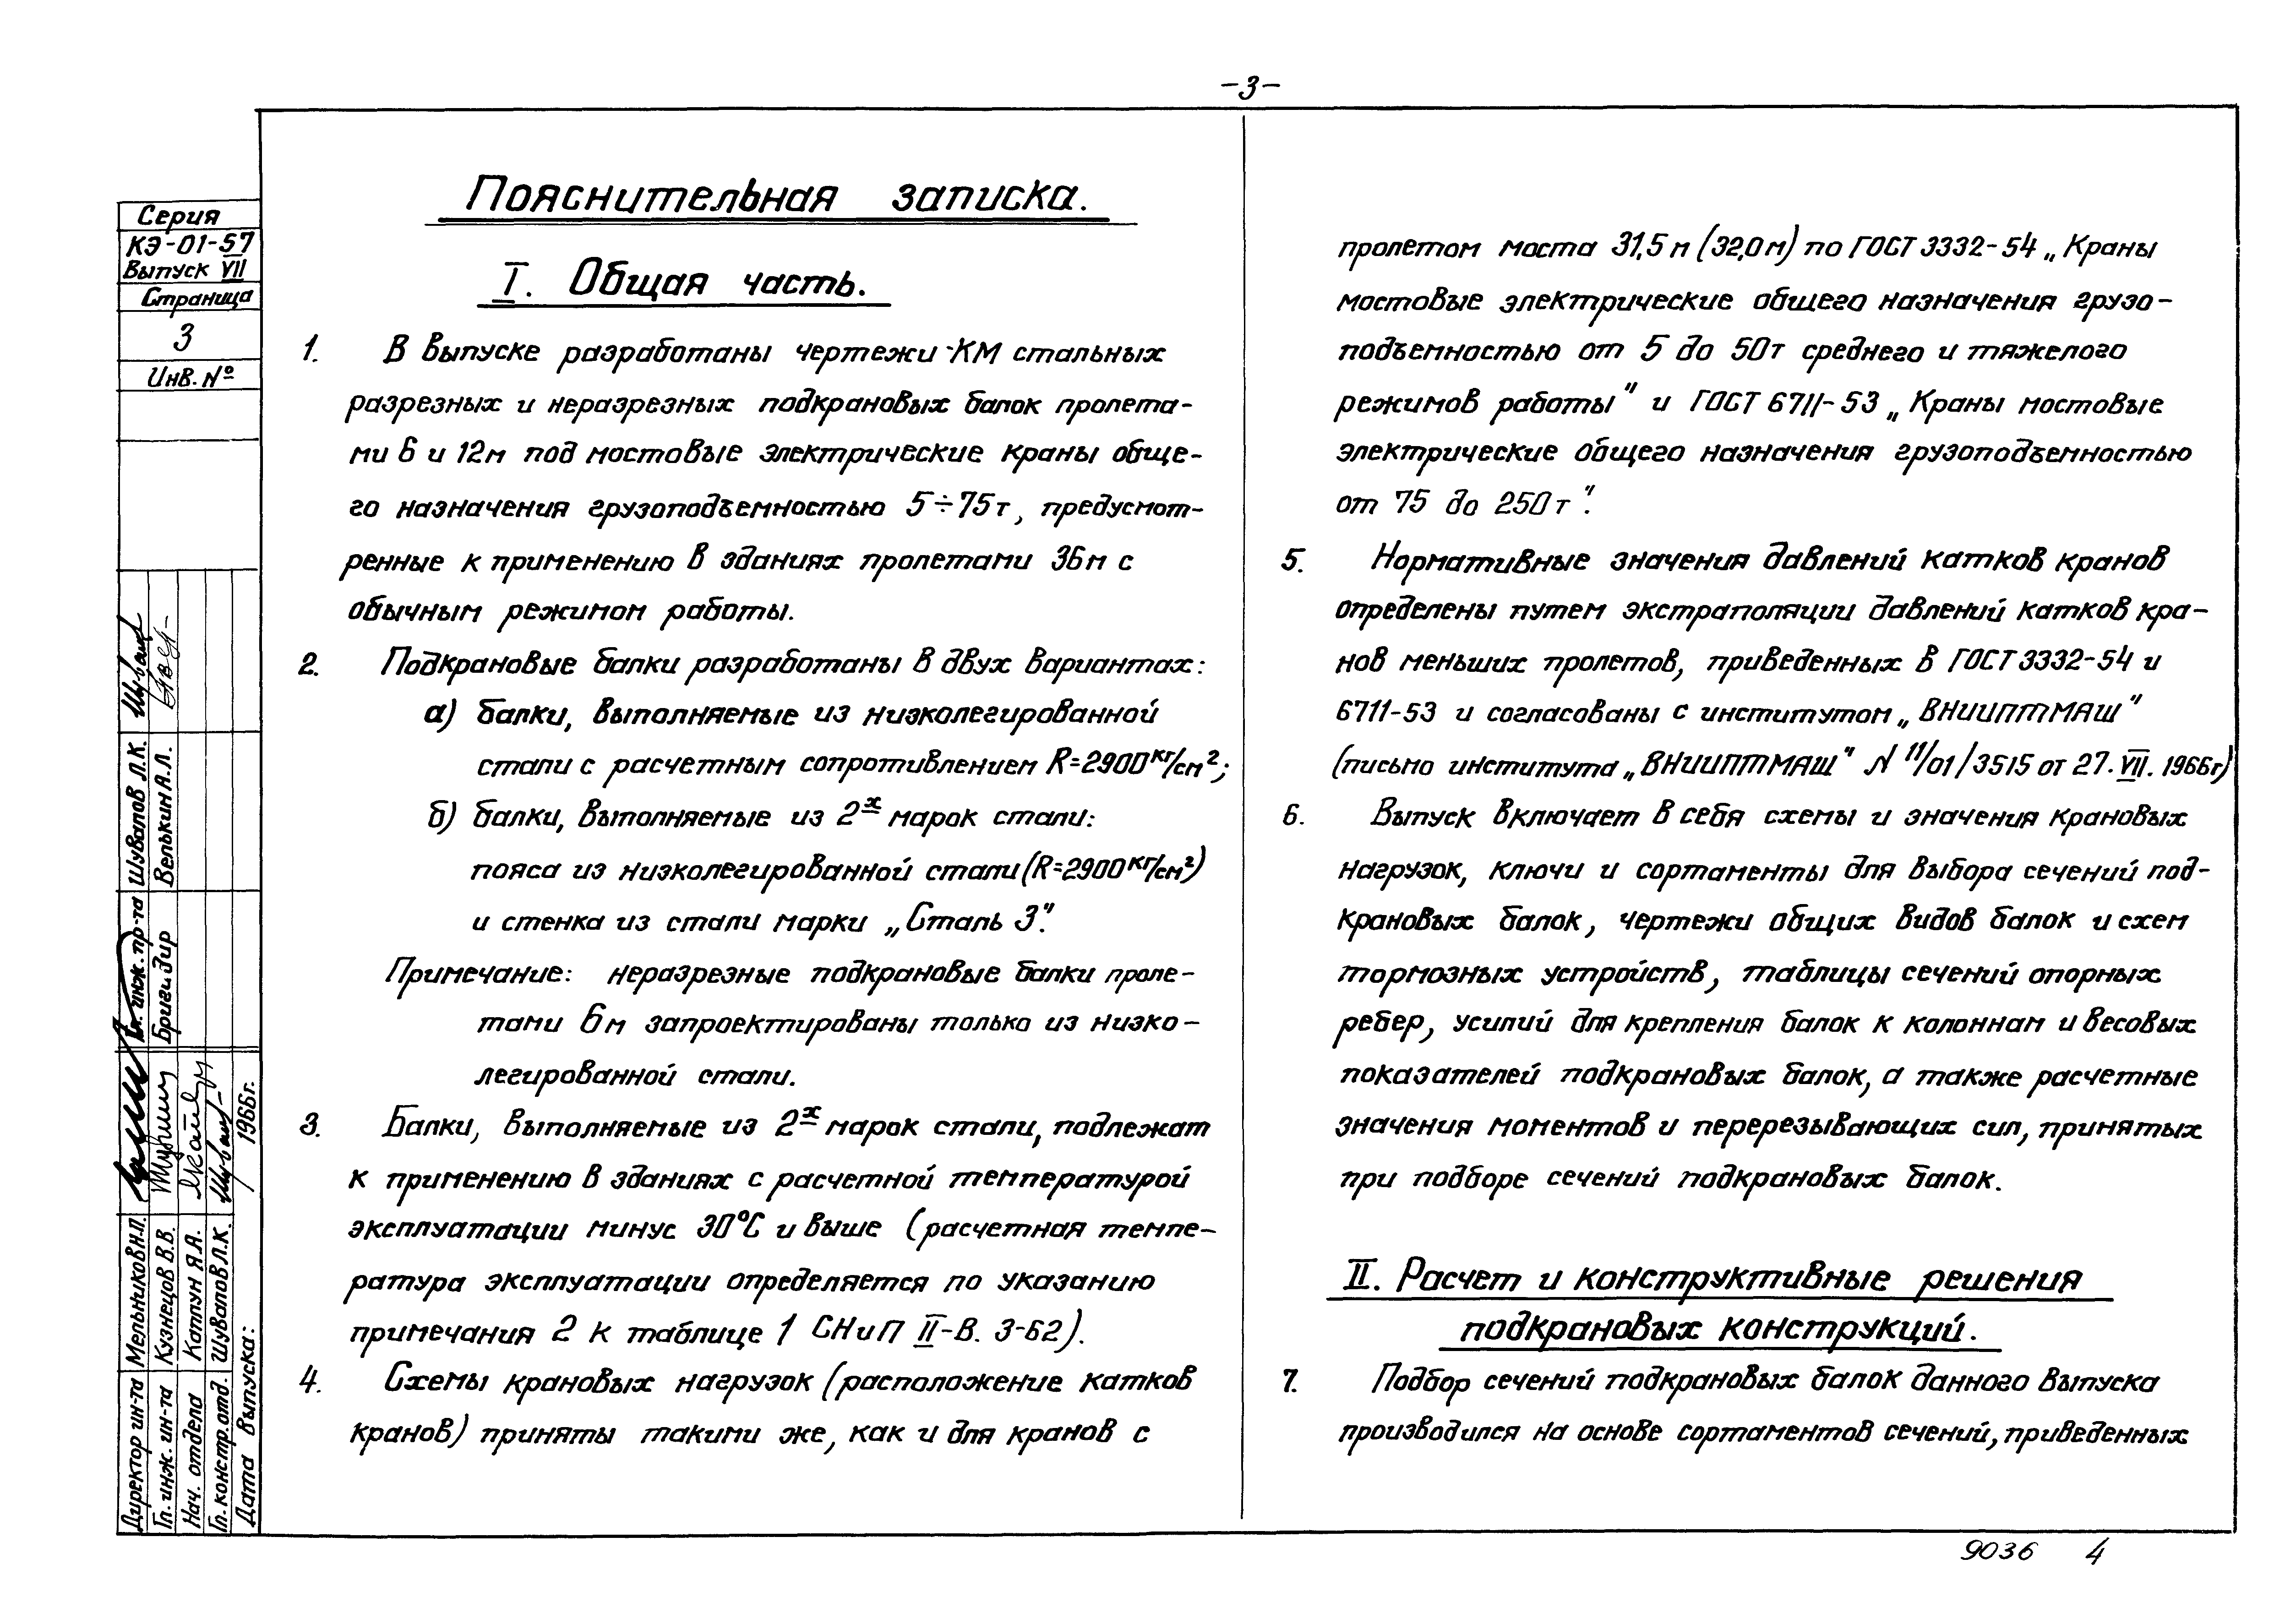 -3-
Серия
КЭ-01-57
Выпуск VII
Страница
3
Инв. №
Гл. инж. пр-та Шувалов Л.К.
Бригадир Велькин А.Л.
Директор ин-та Мельников Н.П.
Гл. инж. ин-та Кузнецов В.В.
Нач. отдела Каплун Я.А.
Гл. констр. отд. Шувалов Л.К.
Дата выпуска: 1966г.
Пояснительная записка.
I. Общая часть.
1. В выпуске разработаны чертежи КМ стальных
разрезных и неразрезных подкрановых балок пролета-
ми 6 и 12м под мостовые электрические краны обще-
го назначения грузоподъемностью 5÷75т, предусмот-
ренные к применению в зданиях пролетами 36м с
обычным режимом работы.
2. Подкрановые балки разработаны в двух вариантах:
а) балки, выполняемые из низколегированной
стали с расчетным сопротивлением R=2900кг/см²;
б) балки, выполняемые из 2х марок стали:
пояса из низколегированной стали (R=2900кг/см²)
и стенка из стали марки „Сталь 3".
Примечание: неразрезные подкрановые балки проле-
тами 6м запроектированы только из низко-
легированной стали.
3. Балки, выполняемые из 2х марок стали, подлежат
к применению в зданиях с расчетной температурой
эксплуатации минус 30°С и выше (расчетная темпе-
ратура эксплуатации определяется по указанию
примечания 2 к таблице 1 СНиП II-В. 3-62).
4. Схемы крановых нагрузок (расположение катков
кранов) приняты такими же, как и для кранов с
пролетом моста 31,5м (32,0м) по ГОСТ 3332-54 „Краны
мостовые электрические общего назначения грузо-
подъемностью от 5 до 50т среднего и тяжелого
режимов работы" и ГОСТ 6711-53 „Краны мостовые
электрические общего назначения грузоподъемностью
от 75 до 250т".
5. Нормативные значения давлений катков кранов
определены путем экстраполяции давлений катков кра-
нов меньших пролетов, приведенных в ГОСТ 3332-54 и
6711-53 и согласованы с институтом „ВНИИПТМАШ"
(письмо института „ВНИИПТМАШ" N 11/01/3515 от 27.VII.1966г)
6. Выпуск включает в себя схемы и значения крановых
нагрузок, ключи и сортаменты для выбора сечений под-
крановых балок, чертежи общих видов балок и схем
тормозных устройств, таблицы сечений опорных
ребер, усилий для крепления балок к колоннам и весовых
показателей подкрановых балок, а также расчетные
значения моментов и перерезывающих сил, принятых
при подборе сечений подкрановых балок.
II. Расчет и конструктивные решения
подкрановых конструкций.
7. Подбор сечений подкрановых балок данного выпуска
производился на основе сортаментов сечений, приведенных
9036 4